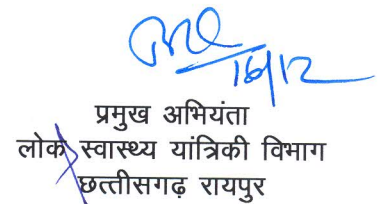 16/12
प्रमुख अभियंता
लोक स्वास्थ्य यांत्रिकी विभाग
छत्तीसगढ़ रायपुर